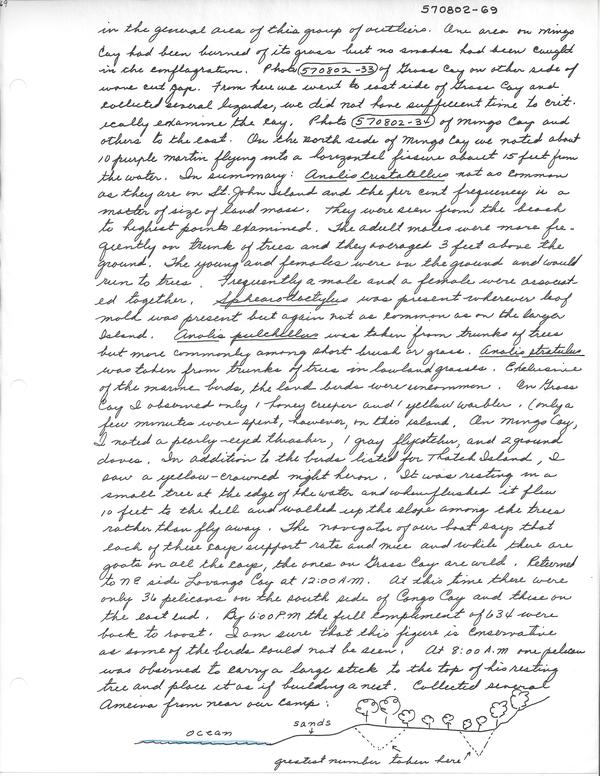 570802-69
in the general area of this group of outliers. One area on Mingo
Cay had been burned of its grass but no snakes had been caught
in the conflagration. Photo 570802-33 of Grass Cay on other side of
wave cut gap. From here we went to east side of Grass Cay and
collected several lizards, we did not have sufficient time to crit-
ically examine the cay. Photo 570802-34 of Mingo Cay and
others to the east. On the north side of Mingo Cay we noted about
10 purple martin flying into a horizontal fissure about 15 feet from
the water. In summary: Anolis cristatellus not as common
as they are on St. John Island and the per cent frequency is a
matter of size of land mass. They were seen from the beach
to highest points examined. The adult males were more fre-
quently on trunk of trees and they averaged 3 feet above the
ground. The young and females were on the ground and would
run to trees. Frequently a male and a female were associat-
ed together. Sphearodactylus was present wherever leaf
mold was present but again not as common as on the larger
Island. Anolis pulchellus was taken from trunks of trees
but more commonly among short brush or grass. Anolis stratulus
was taken from trunks of trees in lowland grasses. Exclusive
of the marine birds, the land birds were uncommon. On Grass
Cay I observed only 1 honey creeper and 1 yellow warbler. (only a
few minutes were spent, however, on this island. On Mingo Cay,
I noted a pearly-eyed thrasher, 1 gray flycatcher, and 2 ground
doves. In addition to the birds listed for Thatch Island, I
saw a yellow-crowned night heron. It was resting in a
small tree at the edge of the water and when flushed it flew
10 feet to the hill and walked up the slope among the trees
rather than fly away. The navigator of our boat says that
each of these cays support rats and mice and while there are
goats on all the cays, the ones on Grass Cay are wild. Returned
to NE side Lovango Cay at 12:00 A.M. At this time there were
only 36 pelicans on the south side of Congo Cay and these on
the east end. By 6:00 P.M the full compliment of 634 were
back to roost. I am sure that this figure is conservative
as some of the birds could not be seen. At 8:00 A.M one pelican
was observed to carry a large stick to the top of his resting
tree and place it as if building a nest. Collected several
Ameiva from near our camp:
sands
ocean
greatest number taken here